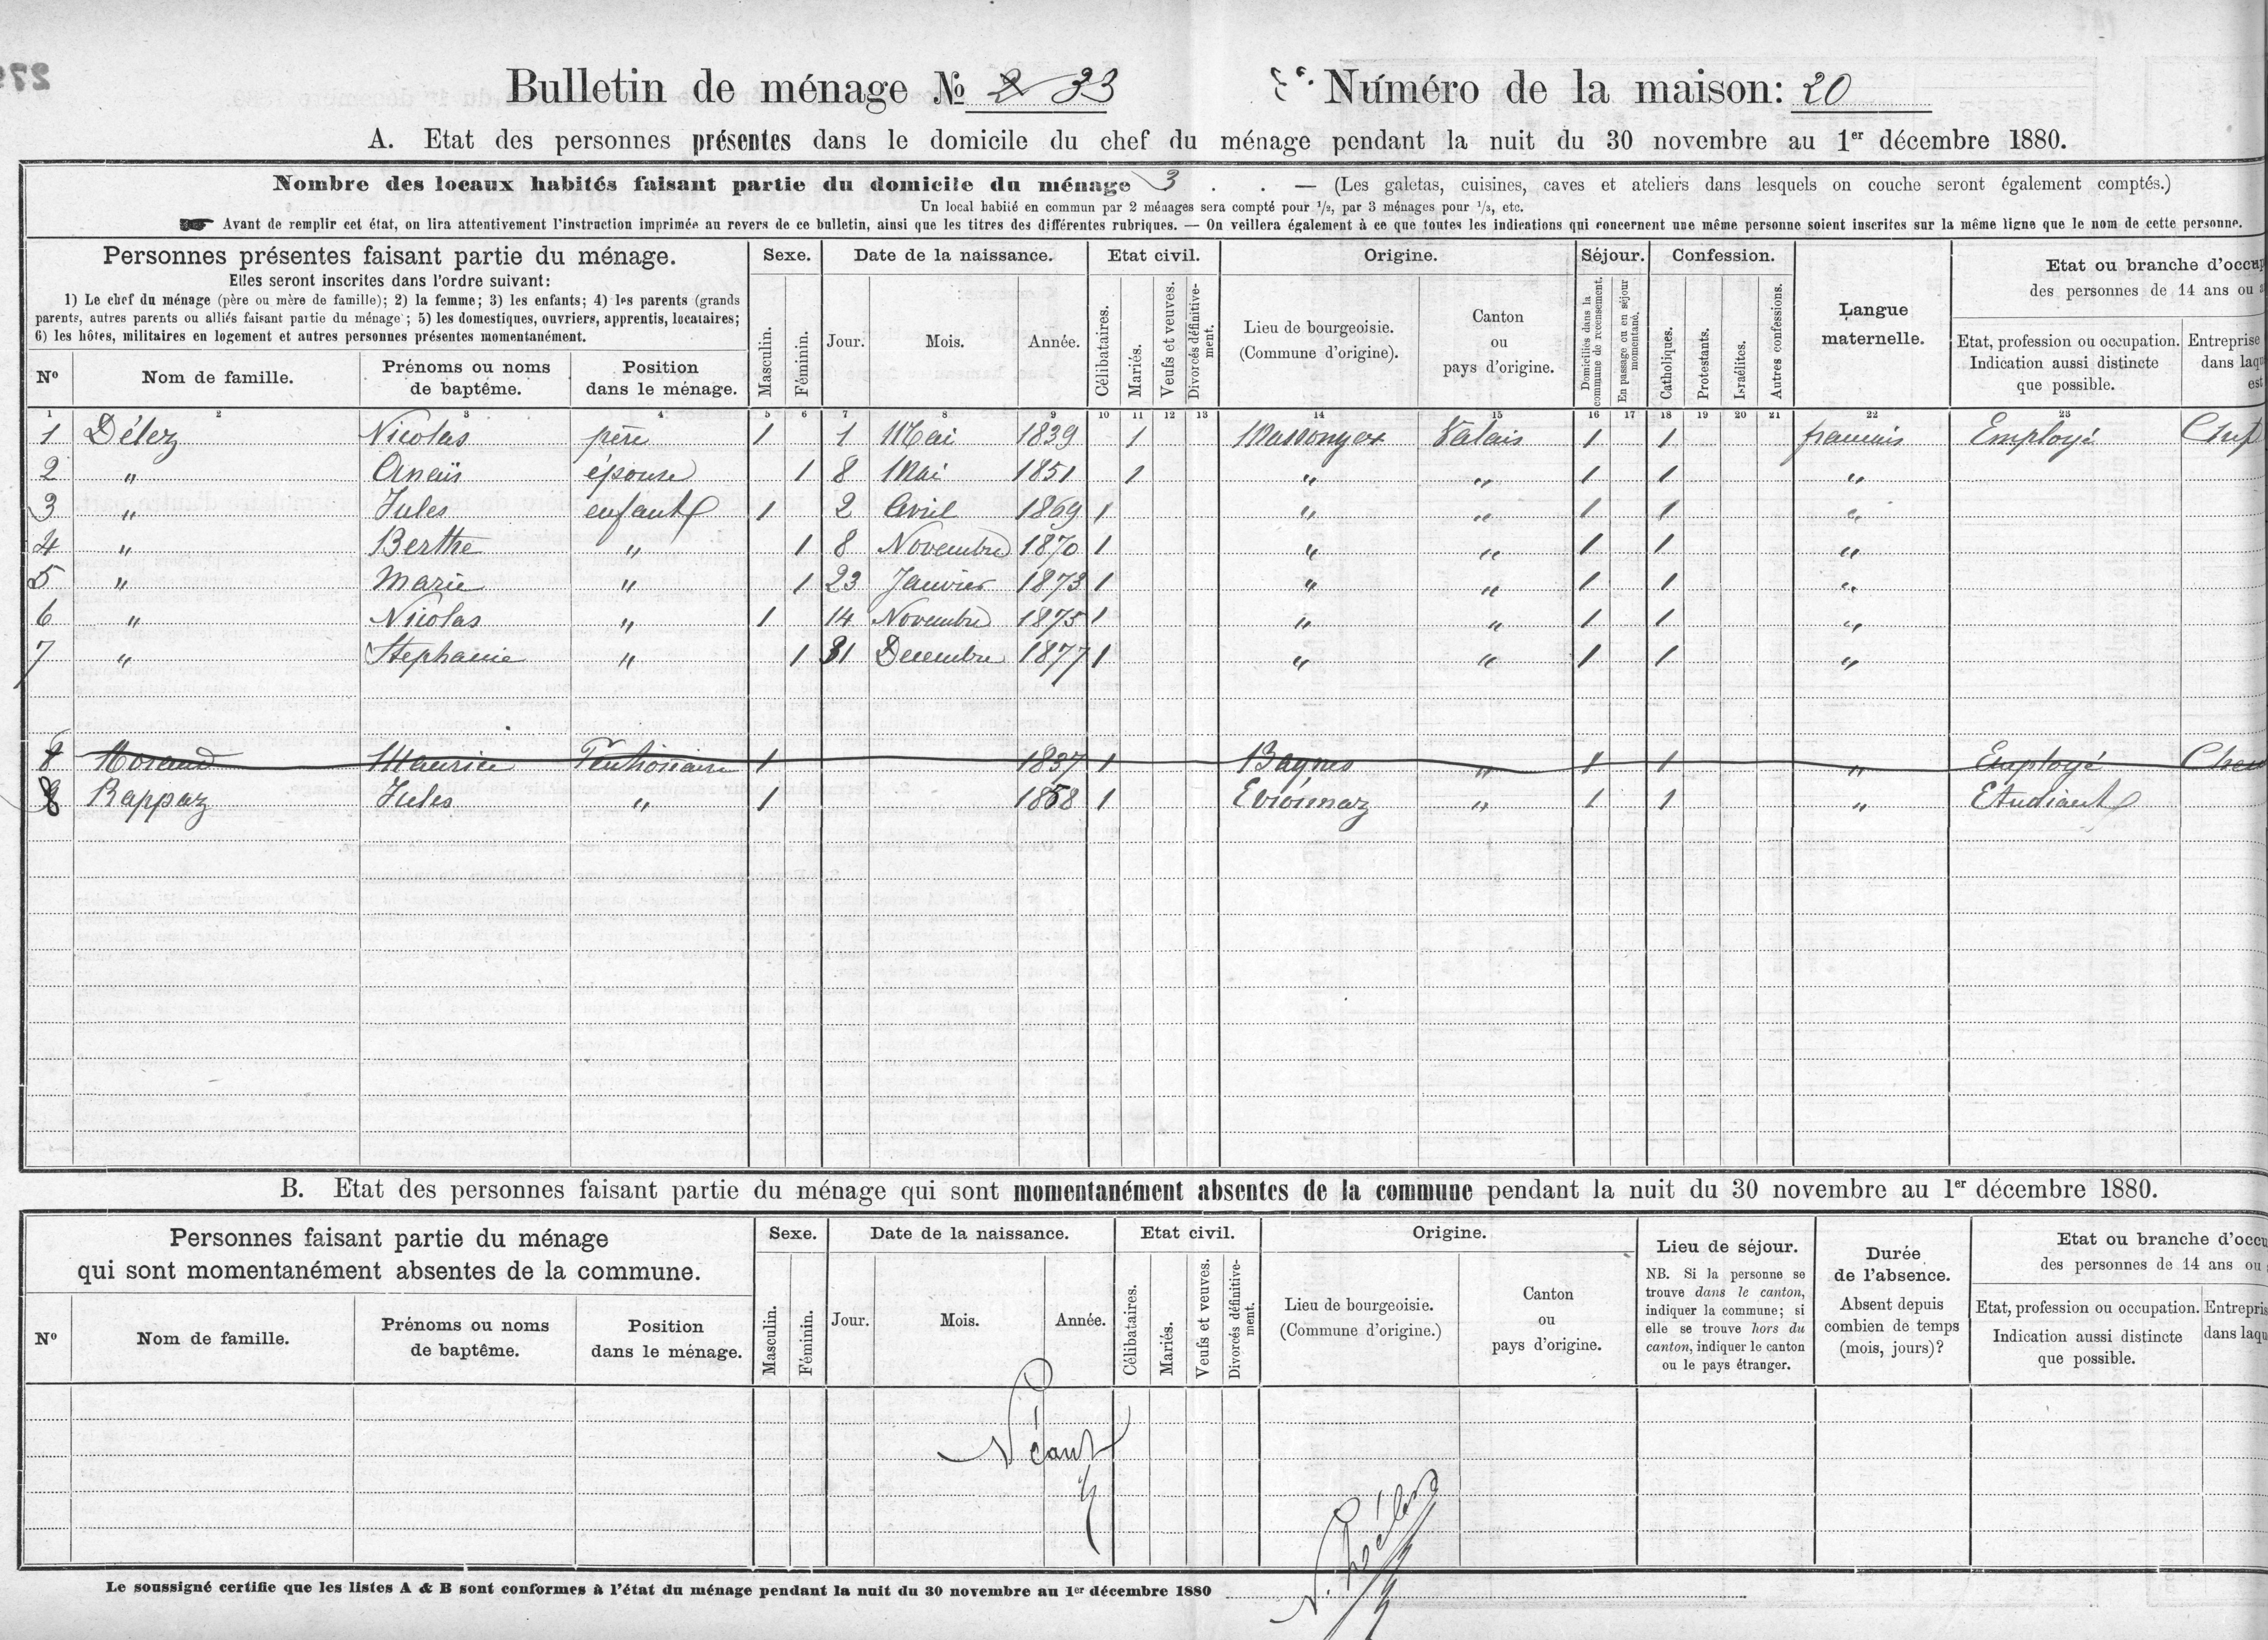 Bulletin de ménage № 2 33
Numéro de la maison: 20
A. Etat des personnes présentes dans le domicile du chef du ménage pendant la nuit du 30 novembre au 1er décembre 1880.
Nombre des locaux habités faisant partie du domicile du ménage 3 . . — (Les galetas, cuisines, caves et ateliers dans lesquels on couche seront également comptés.)
Un local habité en commun par 2 ménages sera compté pour 1/2, par 3 ménages pour 1/3, etc.
Avant de remplir cet état, on lira attentivement l'instruction imprimée au revers de ce bulletin, ainsi que les titres des différentes rubriques. — On veillera également à ce que toutes les indications qui concernent une même personne soient inscrites sur la même ligne que le nom de cette personne.
Personnes présentes faisant partie du ménage.
Elles seront inscrites dans l'ordre suivant:
1) Le chef du ménage (père ou mère de famille); 2) la femme; 3) les enfants; 4) les parents (grands
parents, autres parents ou alliés faisant partie du ménage; 5) les domestiques, ouvriers, apprentis, locataires;
6) les hôtes, militaires en logement et autres personnes présentes momentanément.
Nº
Nom de famille.
Prénoms ou noms
de baptême.
Position
dans le ménage.
Sexe.
Masculin.
Féminin.
Date de la naissance.
Jour.
Mois.
Année.
Etat civil.
Célibataires.
Mariés.
Veufs et veuves.
Divorcés définitive-
ment.
Origine.
Lieu de bourgeoisie.
(Commune d'origine).
Canton
ou
pays d'origine.
Séjour.
Domiciliés dans la
commune de recensement.
En passage ou en séjour
momentané.
Confession.
Catholiques.
Protestants.
Israélites.
Autres confessions.
Langue
maternelle.
Etat ou branche d'occup
des personnes de 14 ans ou
Etat, profession ou occupation.
Indication aussi distincte
que possible.
Entreprise
dans laqu
est
1 2 3 4 5 6 7 8 9 10 11 12 13 14 15 16 17 18 19 20 21 22 23
1 Délez Nicolas père 1 1 Mai 1839 1 Massongex Valais 1 1 français Employé Chef
2 " Anaïs épouse 1 8 Mai 1851 1 " " 1 1 "
3 " Jules enfant 1 2 Avril 1869 1 " " 1 1 "
4 " Berthe " 1 8 Novembre 1870 1 " " 1 1 "
5 " Marie " 1 23 Janvier 1873 1 " " 1 1 "
6 " Nicolas " 1 14 Novembre 1875 1 " " 1 1 "
7 " Stephanie " 1 31 Decembre 1877 1 " " 1 1 "
8 Morand Maurice Pentionaire 1 1837 1 Bagnes " 1 1 " Employé
8 Rappaz Jules " 1 1858 1 Evionnaz " 1 1 " Etudiant
B. Etat des personnes faisant partie du ménage qui sont momentanément absentes de la commune pendant la nuit du 30 novembre au 1er décembre 1880.
Personnes faisant partie du ménage
qui sont momentanément absentes de la commune.
Nº
Nom de famille.
Prénoms ou noms
de baptême.
Position
dans le ménage.
Sexe.
Masculin.
Féminin.
Date de la naissance.
Jour.
Mois.
Année.
Etat civil.
Célibataires.
Mariés.
Veufs et veuves.
Divorcés définitive-
ment.
Origine.
Lieu de bourgeoisie.
(Commune d'origine.)
Canton
ou
pays d'origine.
Lieu de séjour.
NB. Si la personne se
trouve dans le canton,
indiquer la commune; si
elle se trouve hors du
canton, indiquer le canton
ou le pays étranger.
Durée
de l'absence.
Absent depuis
combien de temps
(mois, jours)?
Etat ou branche d'occu
des personnes de 14 ans ou
Etat, profession ou occupation.
Indication aussi distincte
que possible.
Entrepris
dans laqu
Néant
Le soussigné certifie que les listes A & B sont conformes à l'état du ménage pendant la nuit du 30 novembre au 1er décembre 1880
N. Délez